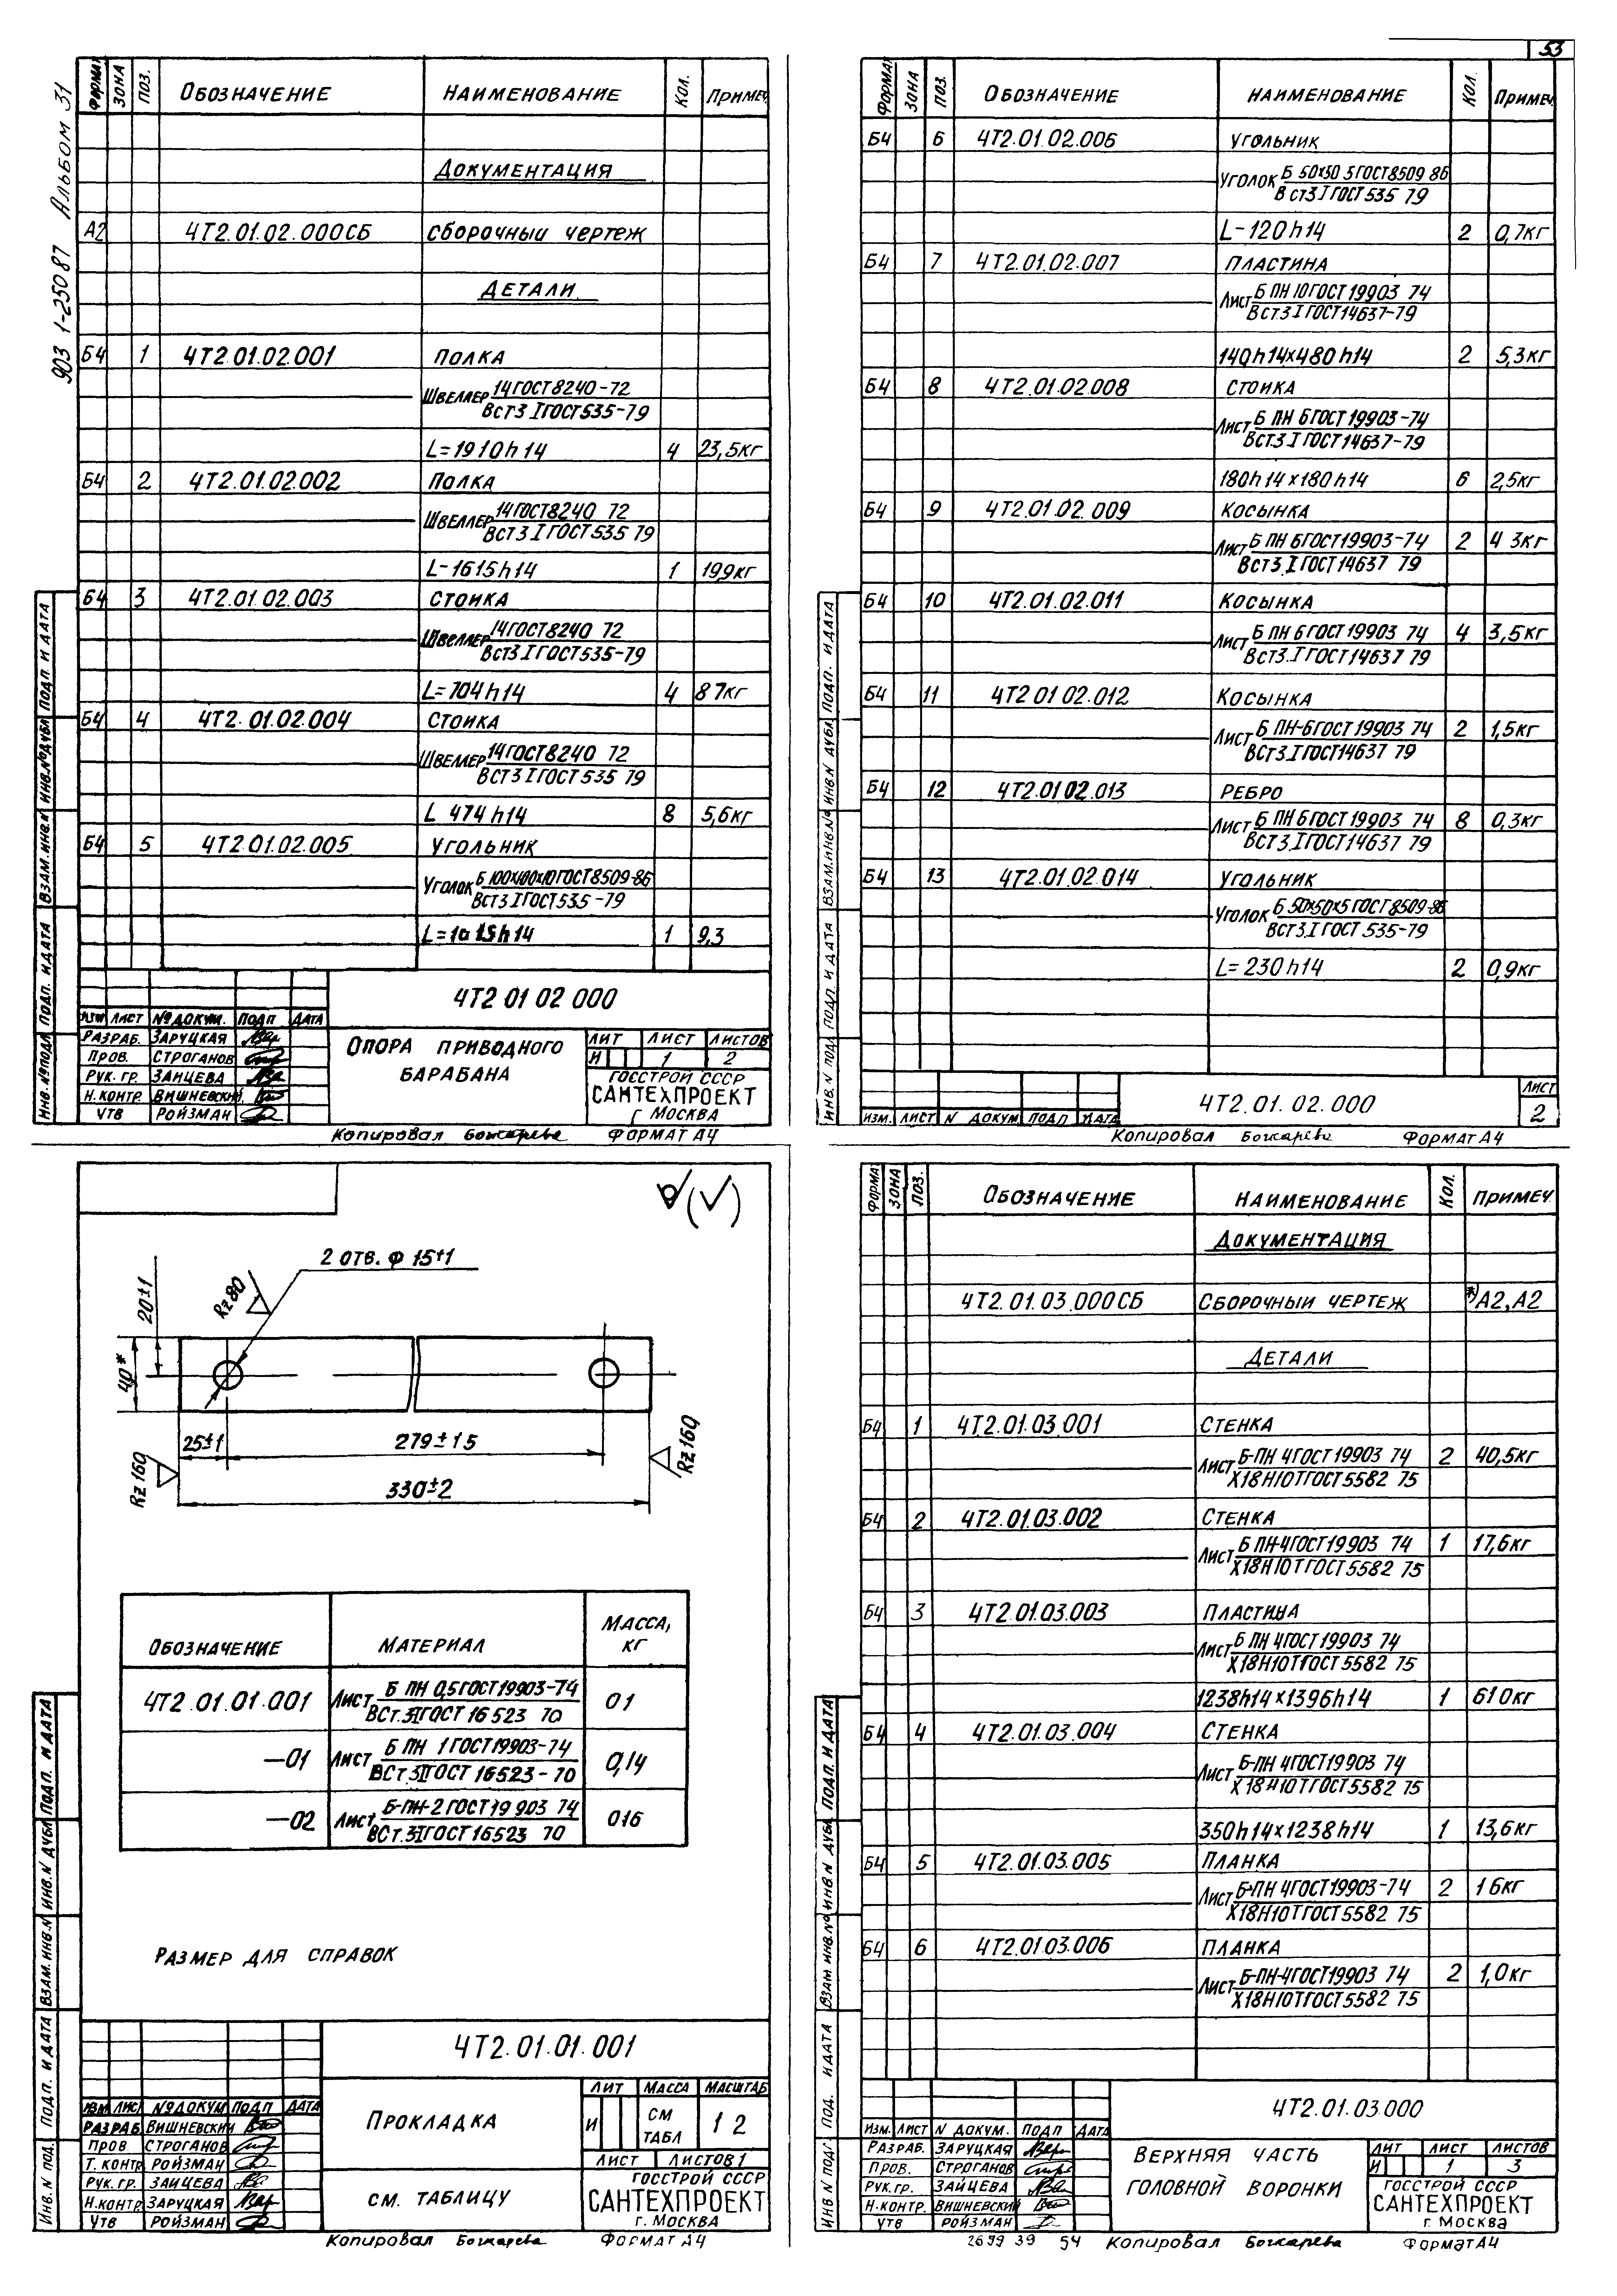 53
903 1-250 87 Альбом 31
Формат Зона Поз. Обозначение Наименование Кол. Примеч.
Документация
А2 4Т2.01.02.000СБ Сборочный чертеж
Детали
Б4 1 4Т2.01.02.001 Полка
Швеллер 14 ГОСТ 8240-72
ВСт3 I ГОСТ 535-79
L=1910h14 4 23,5кг
Б4 2 4Т2.01.02.002 Полка
Швеллер 14 ГОСТ 8240 72
ВСт3 I ГОСТ 535 79
L-1615h14 1 19,9кг
Б4 3 4Т2.01.02.003 Стойка
Швеллер 14 ГОСТ 8240 72
ВСт3 I ГОСТ 535-79
L=704h14 4 8 7кг
Б4 4 4Т2.01.02.004 Стойка
Швеллер 14 ГОСТ 8240 72
ВСт3 I ГОСТ 535 79
L 474h14 8 5,6кг
Б4 5 4Т2.01.02.005 Угольник
Уголок Б 100х100х10 ГОСТ 8509-86
ВСт3 I ГОСТ 535-79
L=1015h14 1 9,3
4Т2 01 02 000
Изм Лист № докум. Подп Дата
Разраб. Заруцкая
Пров. Строганов
Рук. гр. Зайцева
Н.контр. Вишневский
Утв Ройзман
Опора приводного
барабана
Лит Лист Листов
И 1 2
Госстрой СССР
Сантехпроект
г Москва
Инв. № подл. Подп. и дата Взам. инв. № Инв. № дубл. Подп и дата
Копировал Божарева Формат А4
Формат Зона Поз. Обозначение Наименование Кол. Примеч.
Б4 6 4Т2.01.02.006 Угольник
Уголок Б 50х50 5 ГОСТ 8509 86
ВСт3 I ГОСТ 535 79
L-120h14 2 0,7кг
Б4 7 4Т2.01.02.007 Пластина
Лист Б ПН 10 ГОСТ 19903 74
ВСт3 I ГОСТ 14637-79
140h14х480h14 2 5,3кг
Б4 8 4Т2.01.02.008 Стойка
Лист Б ПН 6 ГОСТ 19903-74
ВСт3 I ГОСТ 14637-79
180h14х180h14 6 2,5кг
Б4 9 4Т2.01.02.009 Косынка
Лист Б ПН 6 ГОСТ 19903-74 2 4 3кг
ВСт3 I ГОСТ 14637 79
Б4 10 4Т2.01.02.011 Косынка
Лист Б ПН 6 ГОСТ 19903 74 4 3,5кг
ВСт3 I ГОСТ 14637 79
Б4 11 4Т2 01 02.012 Косынка
Лист Б ПН-6 ГОСТ 19903 74 2 1,5кг
ВСт3 I ГОСТ 14637 79
Б4 12 4Т2.01 02.013 Ребро
Лист Б ПН 6 ГОСТ 19903 74 8 0,3кг
ВСт3 I ГОСТ 14637 79
Б4 13 4Т2.01.02.014 Угольник
Уголок Б 50х50х5 ГОСТ 8509-86
ВСт3 I ГОСТ 535-79
L=230h14 2 0,9кг
Изм. Лист N докум Подп Дата
4Т2.01.02.000
Лист
2
Инв. N подл Подп. и дата Взам. инв. № Инв. N дубл Подп. и дата
Копировал Божарева Формат А4
(√)
2 отв. Ф 15±1
Rz80
20±1
40*
25±1
279±1 5
330±2
Rz160
Rz160
Обозначение Материал Масса, кг
4Т2.01.01.001 Лист Б ПН 0,5 ГОСТ 19903-74 0 1
ВСт.3II ГОСТ 16523 70
—01 Лист Б ПН 1 ГОСТ 19903-74 0,14
ВСт.3II ГОСТ 16523-70
—02 Лист Б-ПН-2 ГОСТ 19 903 74 016
ВСт.3II ГОСТ 16523 70
Размер для справок
4Т2.01.01.001
Изм Лист № докум Подп Дата
Разраб. Вишневский
Пров Строганов
Т. контр Ройзман
Рук. гр. Зайцева
Н.контр. Заруцкая
Утв Ройзман
Прокладка
Лит Масса Масштаб
И см табл 1 2
Лист Листов 1
см. таблицу
Госстрой СССР
Сантехпроект
г. Москва
Инв. N подл Подп. и дата Взам. инв. № Инв. N дубл Подп. и дата
Копировал Божарева Формат А4
Формат Зона Поз. Обозначение Наименование Кол. Примеч
Документация
4Т2.01.03.000СБ Сборочный чертеж *) А2, А2
Детали
Б4 1 4Т2.01.03.001 Стенка
Лист Б-ПН 4 ГОСТ 19903 74 2 40,5кг
Х18Н10Т ГОСТ 5582 75
Б4 2 4Т2.01.03.002 Стенка
Лист Б ПН-4 ГОСТ 19903 74 1 17,6кг
Х18Н10Т ГОСТ 5582 75
Б4 3 4Т2.01.03.003 Пластина
Лист Б ПН 4 ГОСТ 19903 74
Х18Н10Т ГОСТ 5582 75
1238h14х1396h14 1 61 0кг
Б4 4 4Т2.01.03.004 Стенка
Лист Б-ПН 4 ГОСТ 19903 74
Х18Н10Т ГОСТ 5582 75
350h14х1238h14 1 13,6кг
Б4 5 4Т2.01.03.005 Планка
Лист Б-ПН 4 ГОСТ 19903-74 2 1 6кг
Х18Н10Т ГОСТ 5582 75
Б4 6 4Т2.01.03.006 Планка
Лист Б-ПН-4 ГОСТ 19903 74 2 1,0кг
Х18Н10Т ГОСТ 5582 75
4Т2.01.03.000
Изм. Лист N докум. Подп Дата
Разраб. Заруцкая
Пров. Строганов
Рук.гр. Зайцева
Н.контр. Вишневский
Утв Ройзман
Верхняя часть
головной воронки
Лит Лист Листов
И 1 3
Госстрой СССР
Сантехпроект
г. Москва
Инв N подл Под. и дата Взам инв. № Инв N дубл Подп. и дата
2699 39 54 Копировал Божарева Формат А4